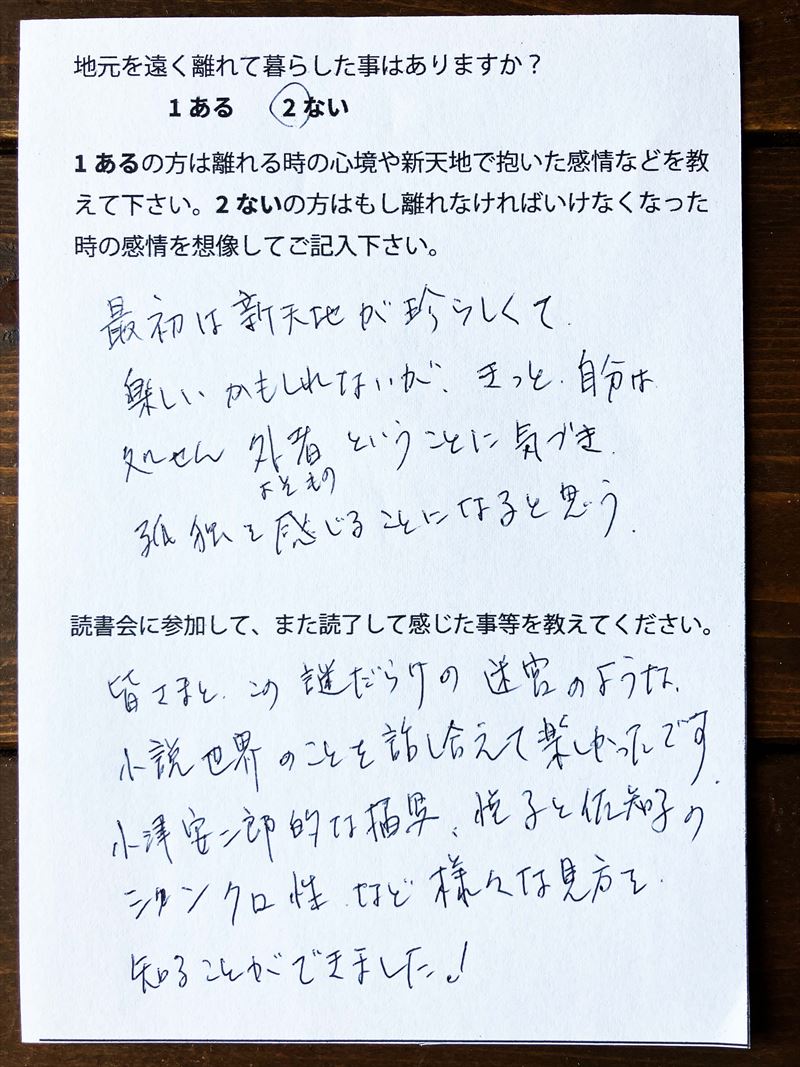 地元を遠く離れて暮らした事はありますか？
1 ある　2 ない
1 あるの方は離れる時の心境や新天地で抱いた感情などを教
えて下さい。2 ないの方はもし離れなければいけなくなった
時の感情を想像してご記入下さい。
最初は新天地が珍らしくて
楽しいかもしれないが、きっと、自分は
所せん 外者 ということに気づき
よそもの
孤独を感じることになると思う.
読書会に参加して、また読了して感じた事等を教えてください。
皆さまと、この謎だらけの迷宮のような、
小説世界のことを話し合えて楽しかったです.
小津安二郎的な描写、悦子と佐知子の
シンクロ性など様々な見方を
知ることができました!